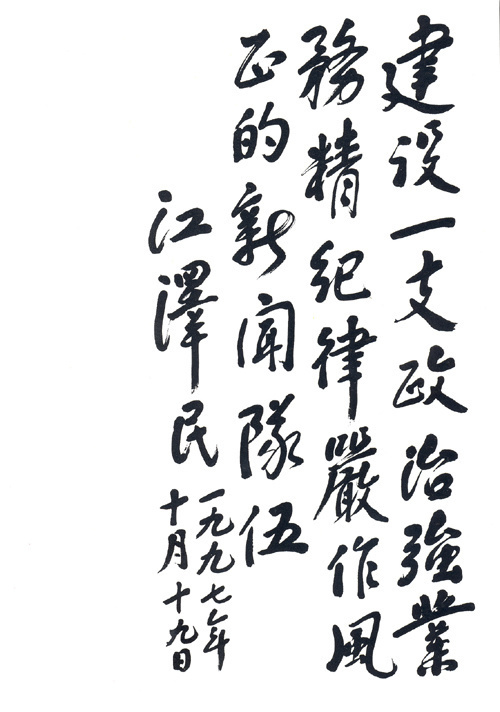 建设一支政治強業
務精紀律嚴作風
正的新闻隊伍
江澤民
一九九七年
十月十九日